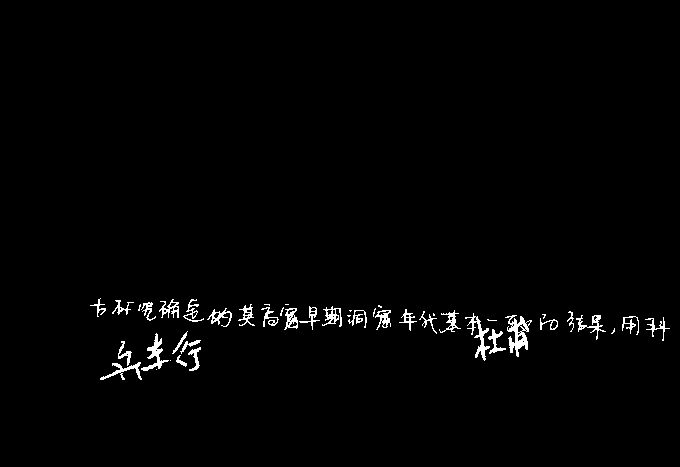 古研究确定的莫高窟早期洞窟年代基本一致的结果,用科
兵车行
杜甫